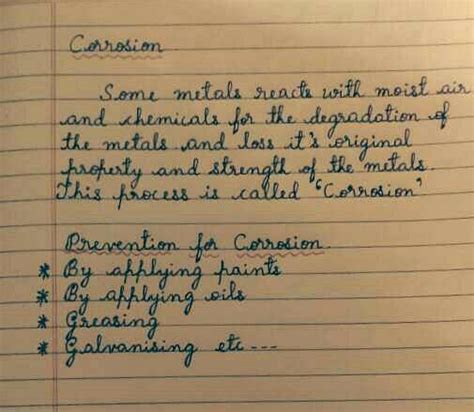 Corrosion
Some metals reacts with moist air
and chemicals for the degradation of
the metals and loss it's original
property and strength of the metals.
This process is called "Corrosion"
Prevention for Corrosion.
* By applying paints
* By applying oils
* Greasing
* Galvanising etc ---